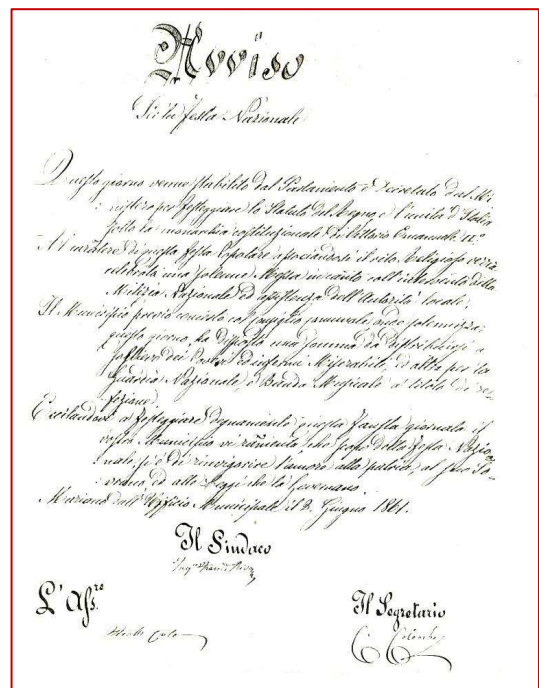 Avviso
Festa Nazionale
Questo giorno venne stabilito dal Parlamento e Decretato dal Mi-
nistero per festeggiare lo Statuto del Regno, e l'unità d'Italia
sotto la monarchia costituzionale di Vittorio Emanuele II.°
Al carattere di questa festa Popolare associandosi il rito Religioso verrà
celebrata una solenne Messa in canto coll'intervento della
Milizia Nazionale ed assistenza dell'Autorità locale.
Il Municipio previo concerto col Consiglio comunale, onde solennizzare
questo giorno, ha disposto una somma da distribuirsi a
sollievo dei Poveri ed infermi Miserabili, ed altra per la
Guardia Nazionale e Banda Musicale a titolo di re-
fezione.
Eccitandovi a festeggiare degnamente questa fausta giornata il
vostro Municipio vi rammenta, che scopo della festa Nazio-
nale si è di rinvigorire l'amore alla patria, al suo So-
vrano, ed alle Leggi che lo Governano.
Mariano dall'Ufficio Municipale il 2. Giugno 1861.
Il Sindaco
Ing.
L'Ass.re
Il Segretario
C. Colombo